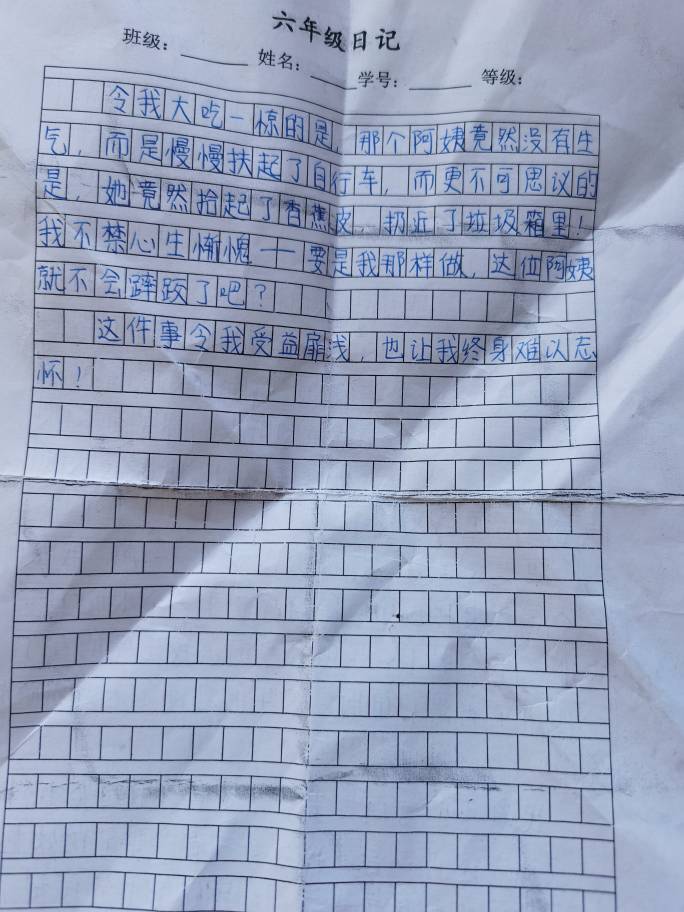 六年级日记
班级： 姓名： 学号： 等级：
令我大吃一惊的是，那个阿姨竟然没有生
气，而是慢慢扶起了自行车，而更不可思议的
是，她竟然拾起了香蕉皮，扔近了垃圾箱里！
我不禁心生惭愧——要是我那样做，这位阿姨
就不会踤跤了吧？
这件事令我受益扉浅，也让我终身难以忘
怀！